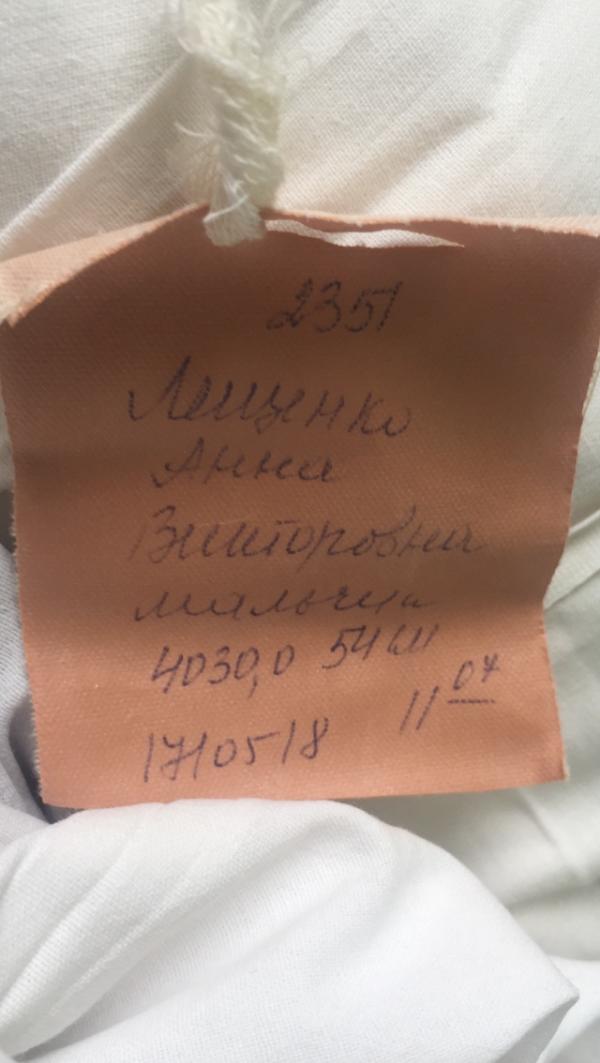 2351
Лещенко
Анна
Викторовна
мальчик
4030,0 54 см
17/05/18 11 07